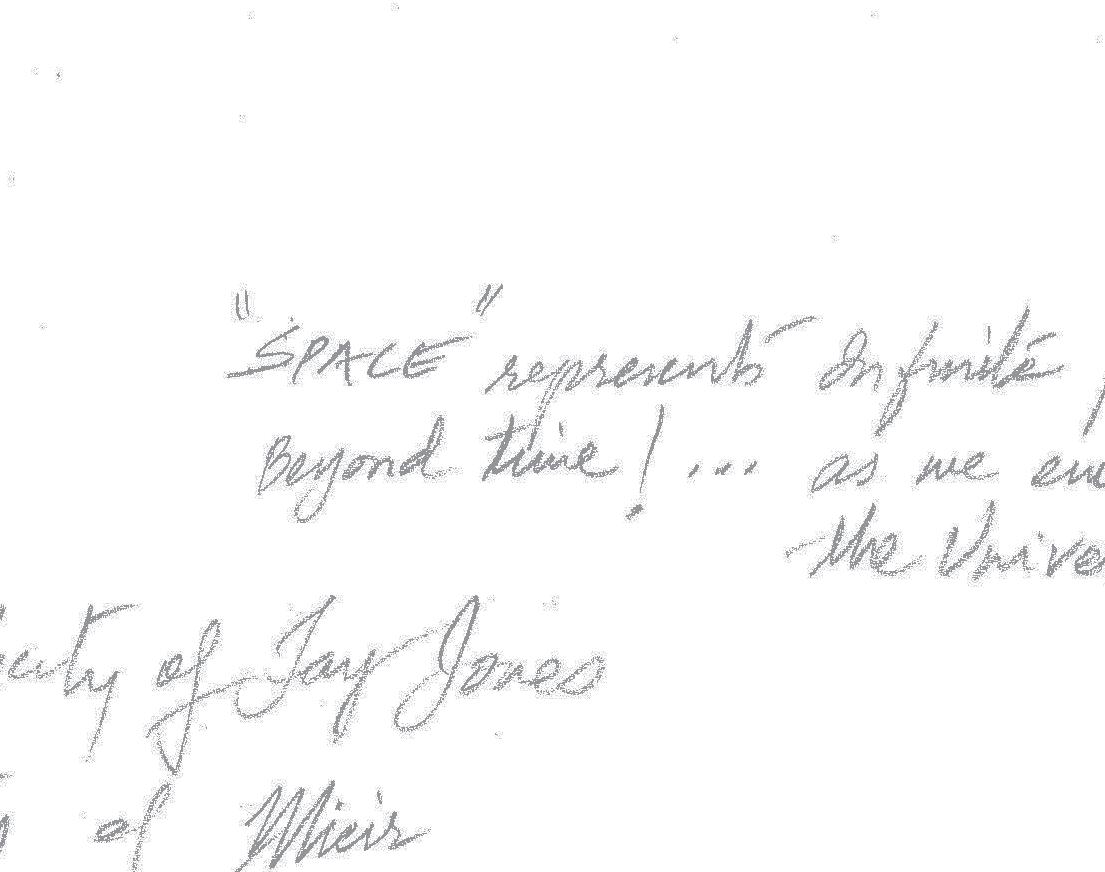 "SPACE" represents Infinité
Beyond time! ... as we
the Unive
of Jay Jones
of